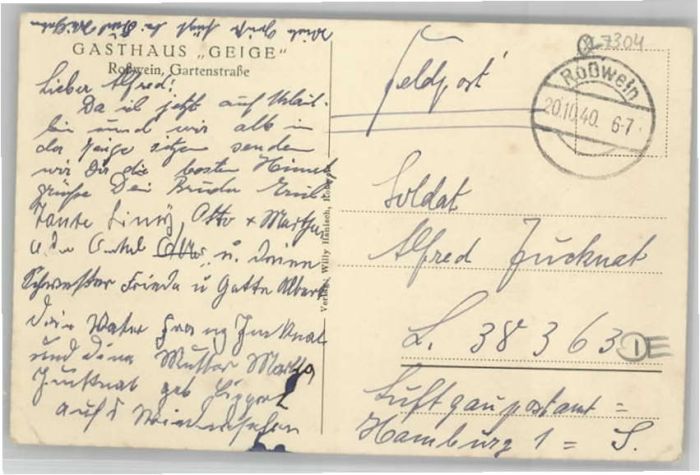 GASTHAUS „GEIGE"
Roßwein, Gartenstraße
Lieber Alfred!
Da ich jetzt auf Urlaub
bin und wir alle in
der Geige sitzen senden
wir Dir die besten
grüße Dein Bruder Erich
Tante Linny, Otto + Martha
u. Deine
Schwester Frieda u Gatte Albert
Dein Vater Franz Jucknat
und deine Mutter Martha
Jucknat geb
auf Wiedersehen
Verlag Willy Hanisch, Roßwein
Feldpost
7304
Roßwein
20.10.40. 6-7
Soldat
Alfred Jucknat
L. 38363
Luftgaupostamt =
Hamburg 1 =